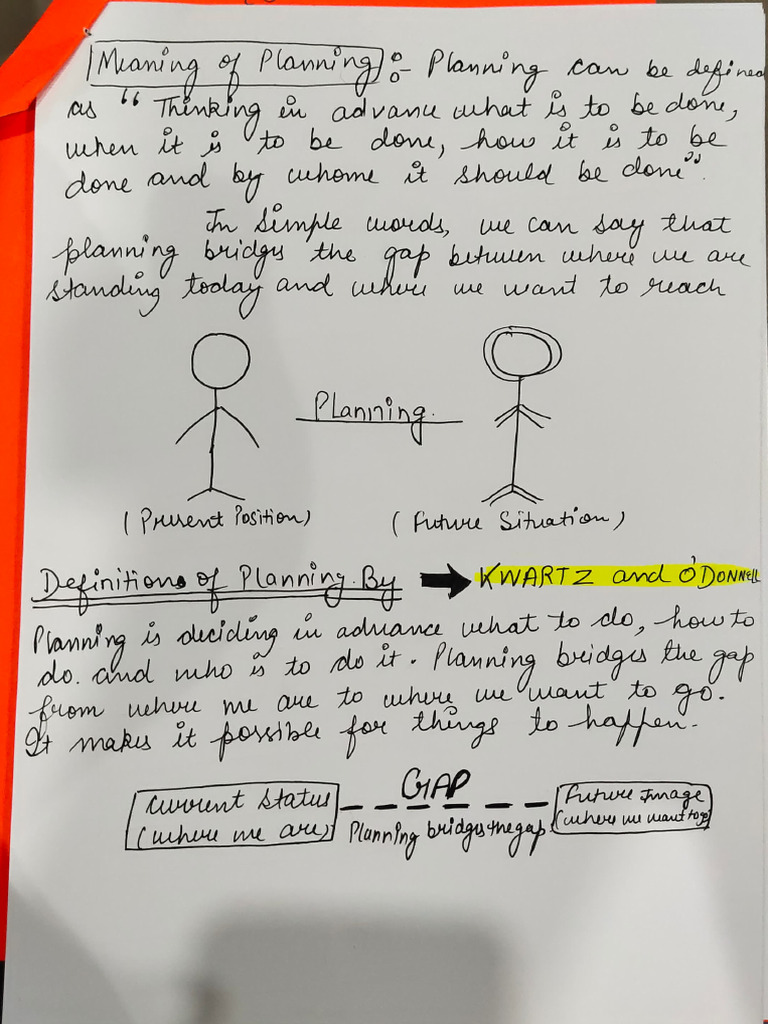 Meaning of Planning :- Planning can be defined
as "Thinking in advance what is to be done,
when it is to be done, how it is to be
done and by whome it should be done".
In Simple words, we can say that
planning bridges the gap between where we are
standing today and where we want to reach
Planning.
(Present Position)
(Future Situation)
Definitions of Planning. By → KWARTZ and O'DONNELL
Planning is deciding in advance what to do, how to
do. and who is to do it. Planning bridges the gap
from where we are to where we want to go.
It makes it possible for things to happen.
GAP
Current Status
(where we are)
Planning bridges the gap.
Future Image
(where we want to go)